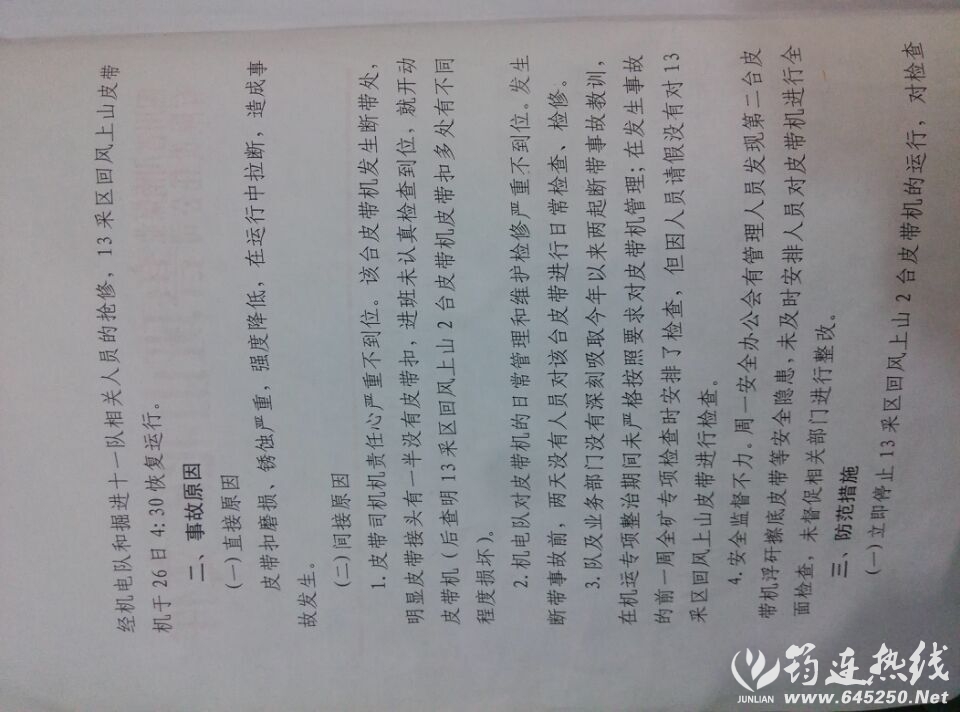 经机电队和掘进十一队相关人员的抢修，13采区回风上山皮带
机于26日4:30恢复运行。
二、事故原因
(一)直接原因
皮带扣磨损、锈蚀严重，强度降低，在运行中拉断，造成事
故发生。
(二)间接原因
1.皮带司机机责任心严重不到位。该台皮带机发生断带处，
明显皮带接头有一半没有皮带扣，进班未认真检查到位，就开动
皮带机(后查明13采区回风上山2台皮带机皮带扣多处有不同
程度损坏)。
2.机电队对皮带机的日常管理和维护检修严重不到位。发生
断带事故前，两天没有人员对该台皮带进行日常检查、检修。
3.队及业务部门没有深刻吸取今年以来两起断带事故教训，
在机运专项整治期间未严格按照要求对皮带机管理；在发生事故
的前一周全矿专项检查时安排了检查，但因人员请假没有对13
采区回风上山皮带进行检查。
4.安全监督不力。周一安全办公会有管理人员发现第二台皮
带机浮矸擦底皮带等安全隐患,未及时安排人员对皮带机进行全
面检查，未督促相关部门进行整改。
三、防范措施
(一)立即停止13采区回风上山2台皮带机的运行，对检查
筠连热线
JUNLIAN www.645250.Net